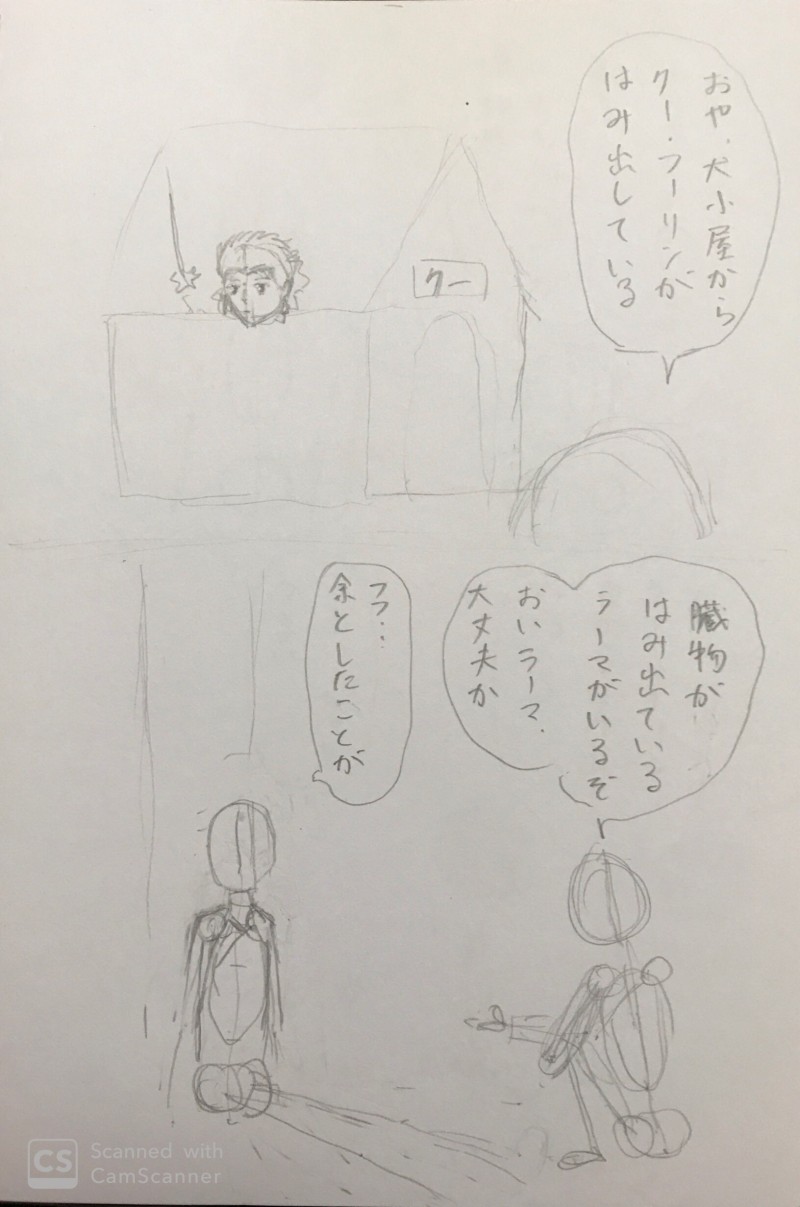 おや、犬小屋から
クー・フーリンが
はみ出している
クー
臓物が
はみ出ている
ラーマがいるぞ
おいラーマ、
大丈夫か
フフ…
余としたことが
CS Scanned with
CamScanner